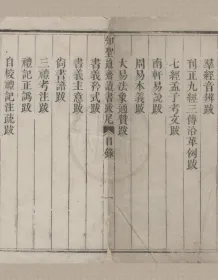 羣經音辨跋
刊正九經三傳沿革例跋
七經孟子考文跋
南軒易說跋
周易本義跋
大易法象通贊跋
知聖道齋讀書跋尾 目錄
書義矜式跋
書義主意跋
尙書譜跋
三禮考注跋
禮記正譌跋
自校禮記注疏跋